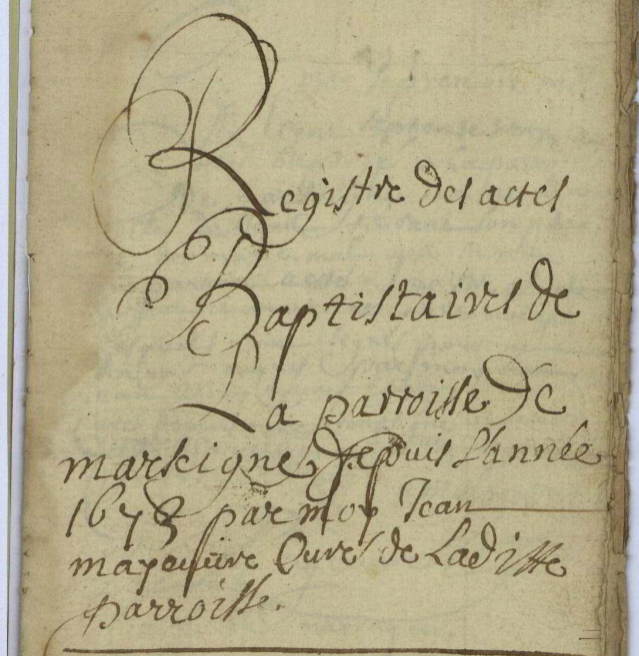 Registre des actes
Baptistaires de
La parroisse de
marsigne depuis L'année
par moy Jean
Curé de Laditte
parroisse.